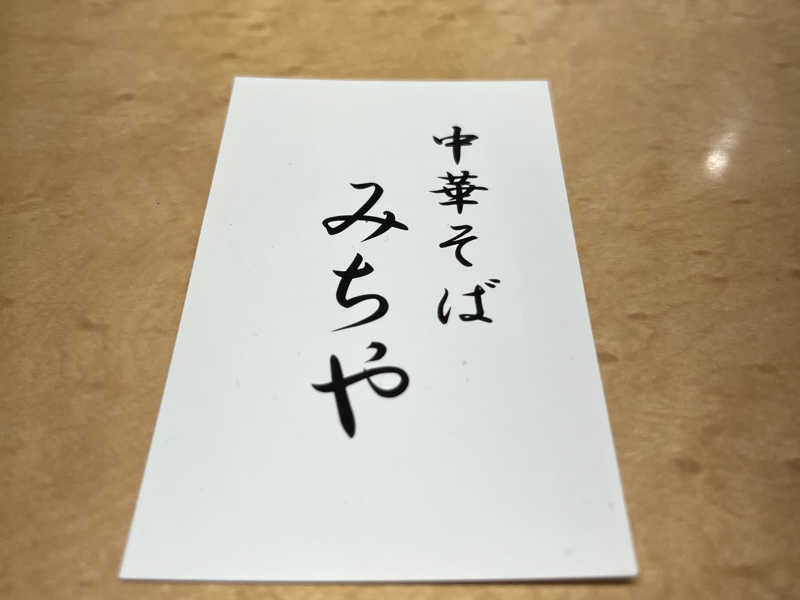 中華そば
みちや